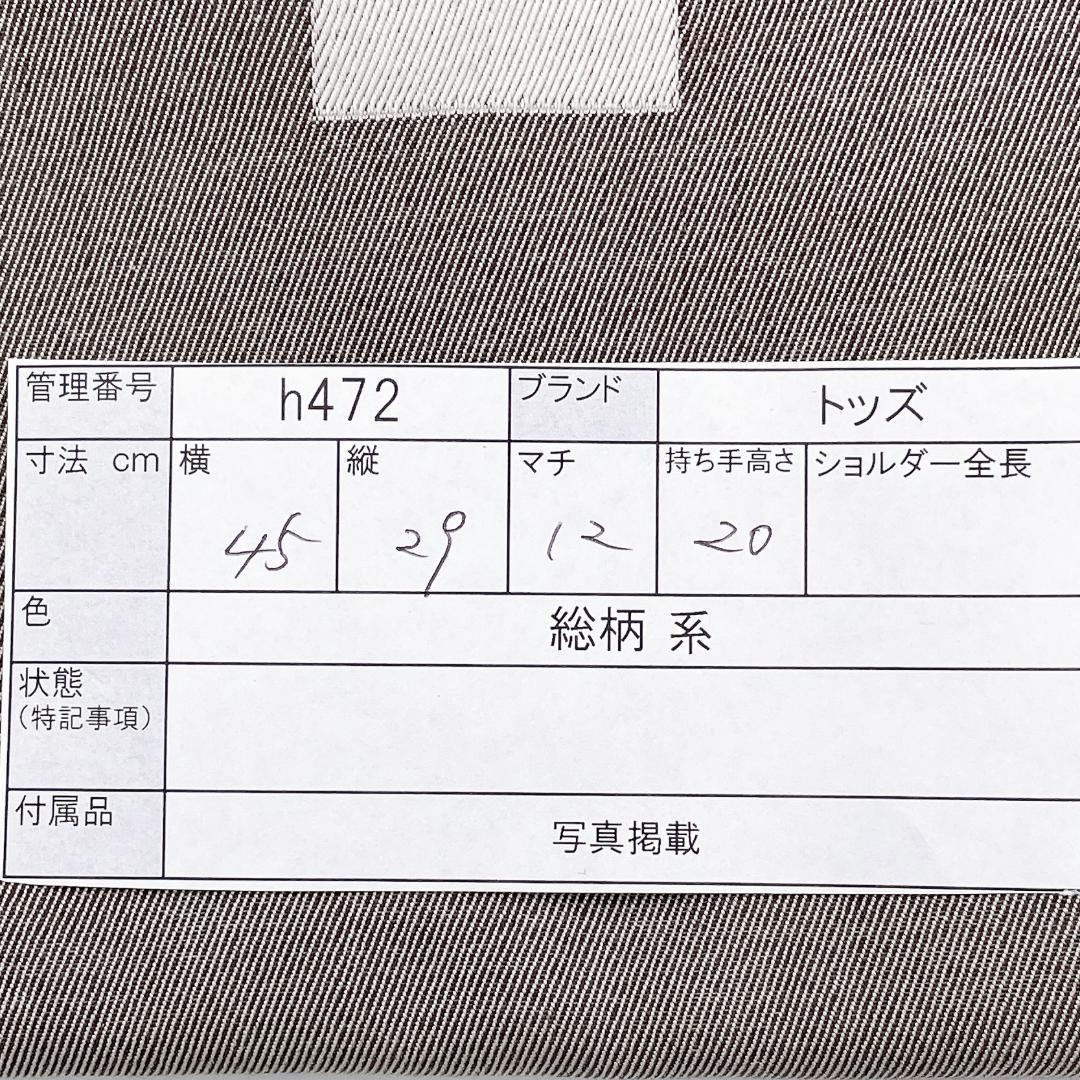 管理番号 h472 ブランド トッズ
寸法 cm 横 縦 マチ 持ち手高さ ショルダー全長
45 29 12 20
色 総柄 系
状態
(特記事項)
付属品 写真掲載